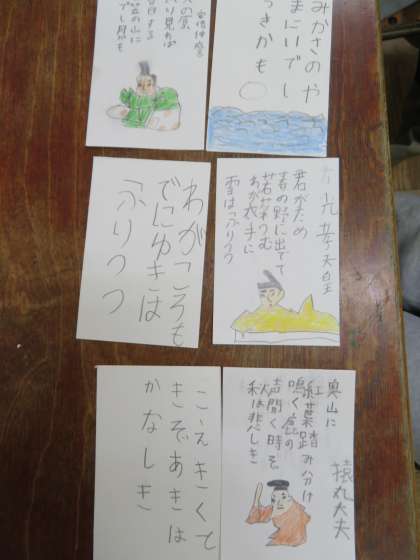 みかさのや
まにいでし
つきかも
安倍仲麿
の原
り見れば
笠の山に
でし月も
光孝天皇
君がため
春の野に出でて
若菜つむ
わが衣手に
雪はふりつつ
わがころも
でにゆきは
ふりつつ
猿丸大夫
奥山に
紅葉踏み分け
鳴く鹿の
声聞く時ぞ
秋は悲しき
こゑきくと
きぞあきは
かなしき